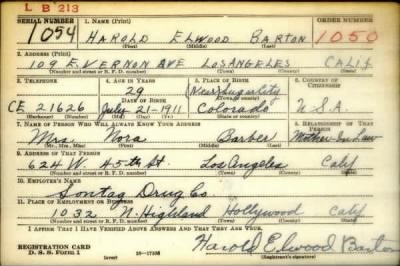 L B 213
SERIAL NUMBER 1. NAME (Print) ORDER NUMBER
1054 HAROLD ELWOOD BARTON 1050
(First) (Middle) (Last)
2. ADDRESS (Print)
109 E. VERNON AVE LOS ANGELES CALIF
(Number and street or R. F. D. number) (Town) (County) (State)
3. TELEPHONE 4. AGE IN YEARS 5. PLACE OF BIRTH 6. COUNTRY OF CITIZENSHIP
29 (Near) Sugar City
DATE OF BIRTH (Town or county)
CE 21626 July 21-1911 Colorado U.S.A.
(Exchange) (Number) (Mo.) (Day) (Yr.) (State or country)
7. NAME OF PERSON WHO WILL ALWAYS KNOW YOUR ADDRESS 8. RELATIONSHIP OF THAT PERSON
Mrs. Nora Barber Mother-In-Law
(Mr., Mrs., Miss) (First) (Middle) (Last)
9. ADDRESS OF THAT PERSON
624 W. 45th St. Los Angeles Calif
(Number and street or R. F. D. number) (Town) (County) (State)
10. EMPLOYER'S NAME
Sontag Drug Co.
11. PLACE OF EMPLOYMENT OR BUSINESS
1032 N. Highland Hollywood Calif
(Number and street or R. F. D. number) (Town) (County) (State)
I AFFIRM THAT I HAVE VERIFIED ABOVE ANSWERS AND THAT THEY ARE TRUE.
REGISTRATION CARD
D. S. S. Form 1 16-17105 Harold Elwood Barton